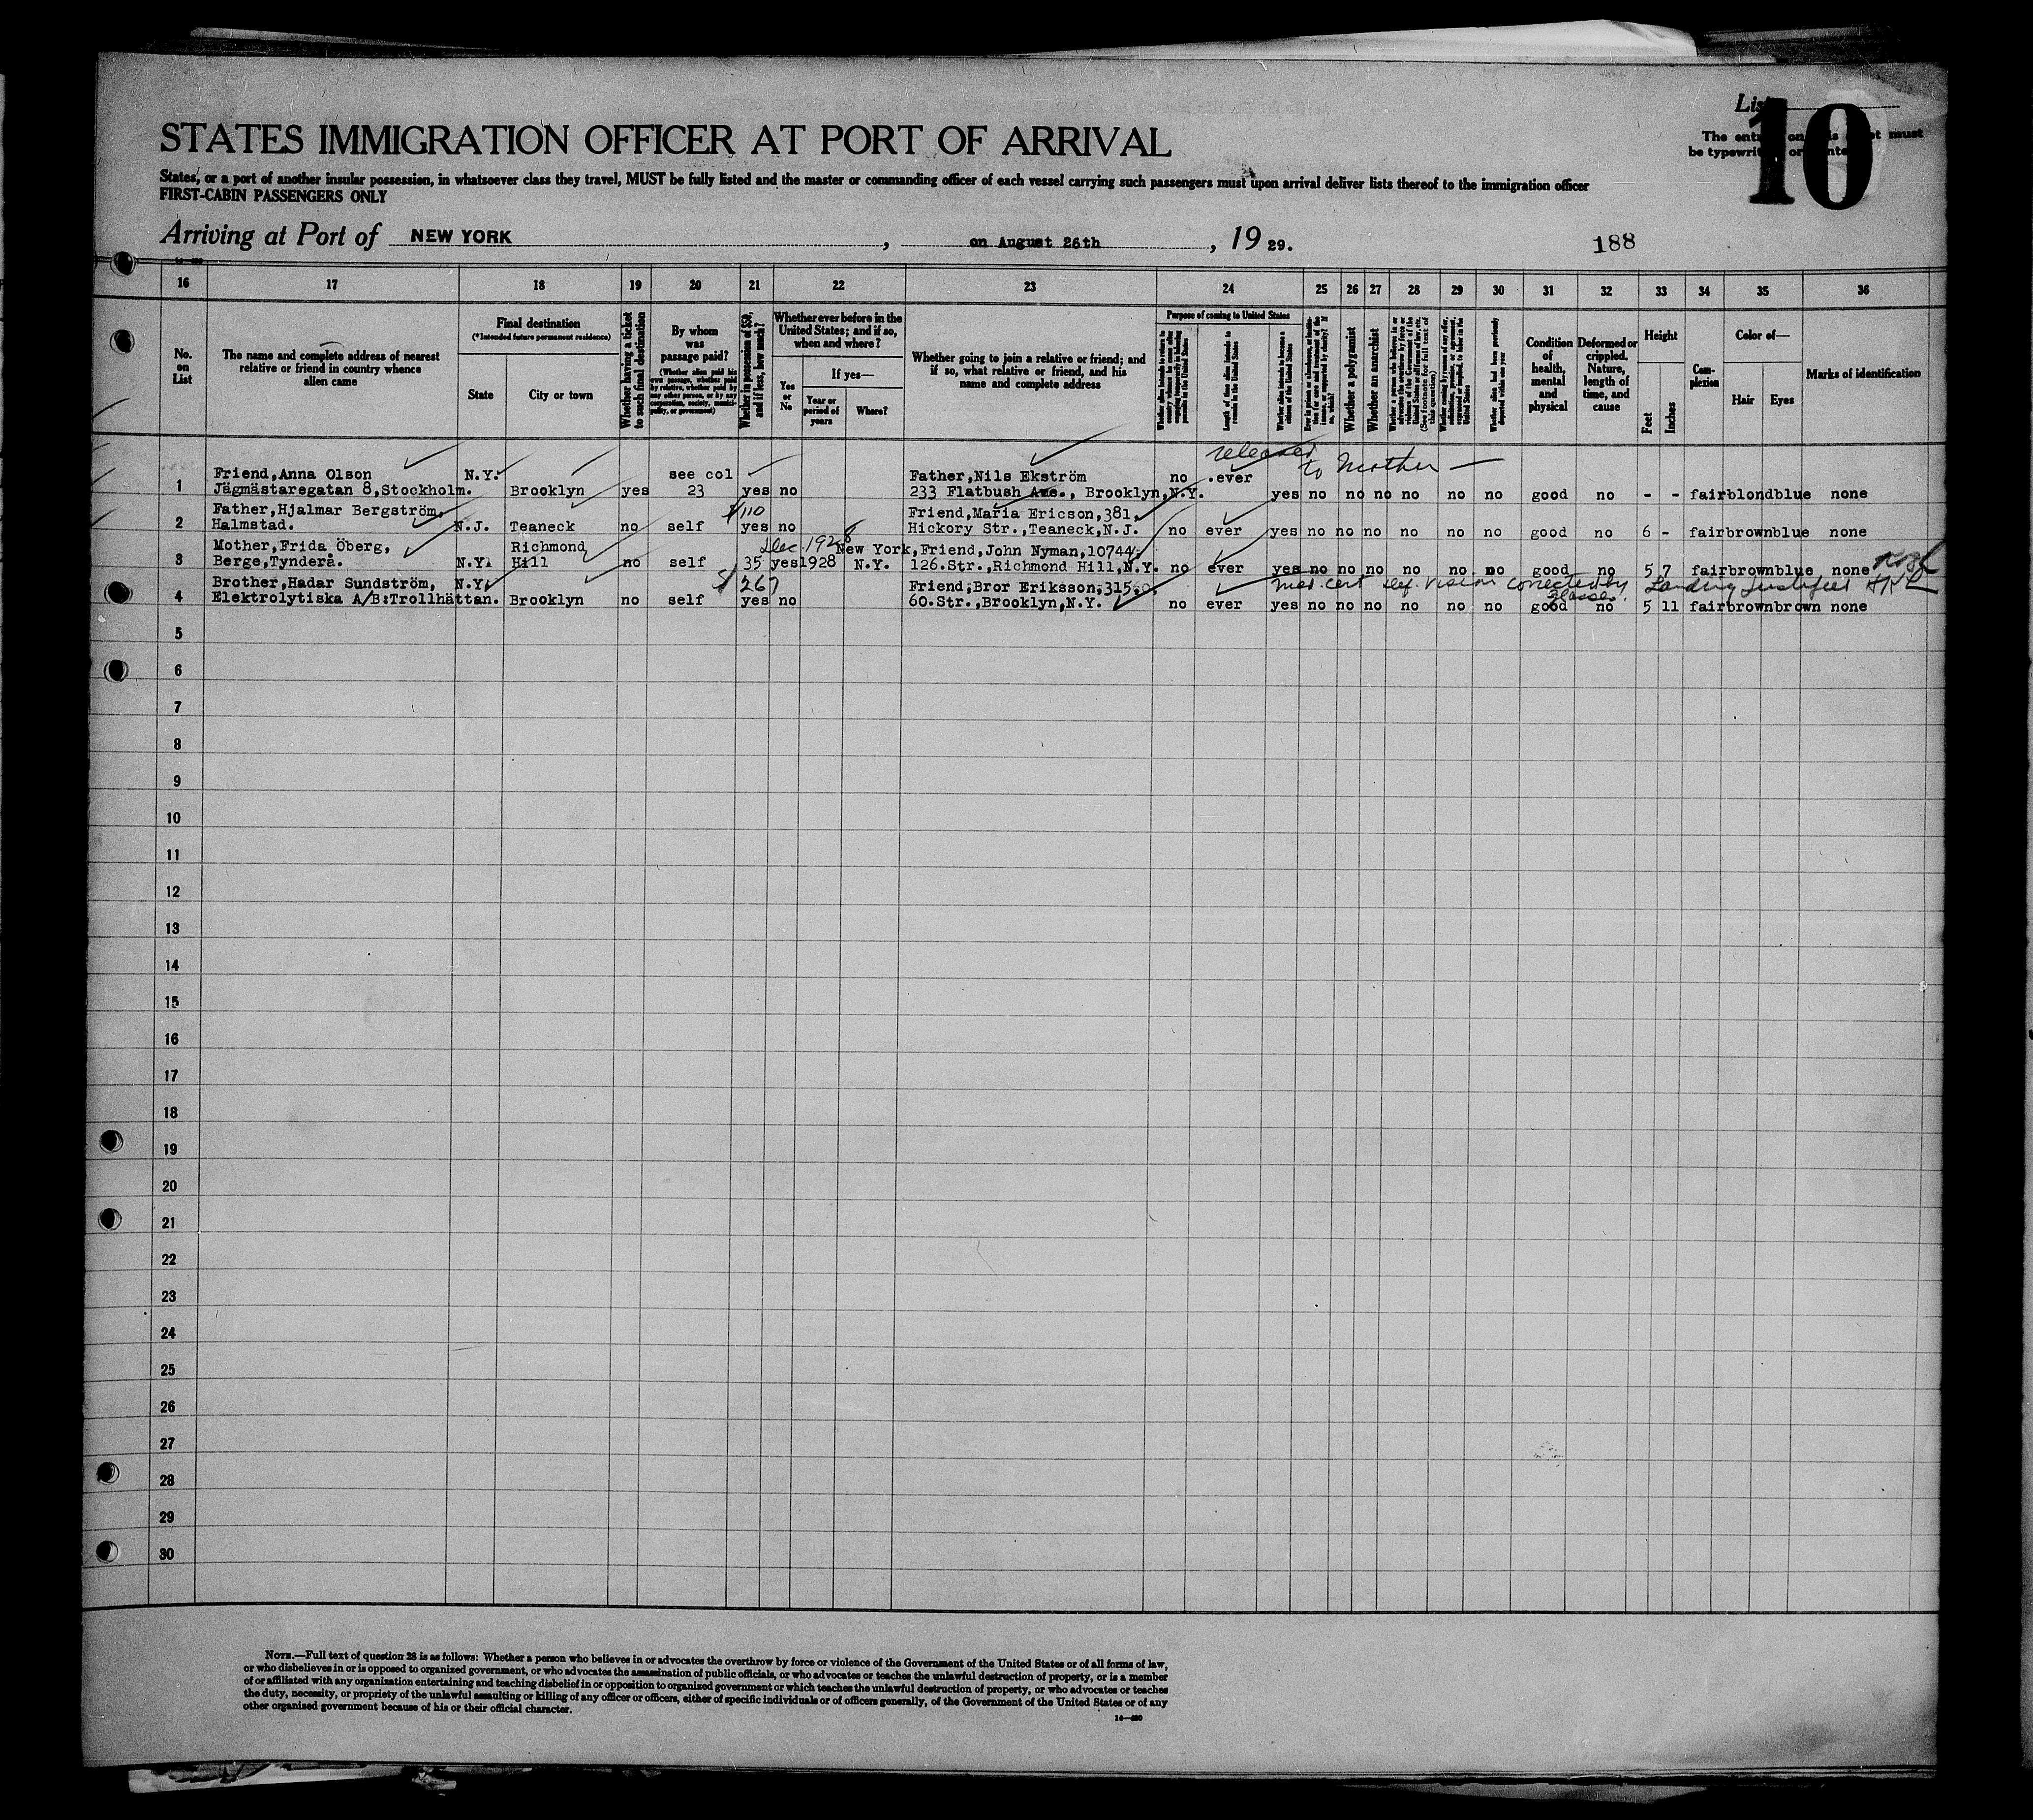 List
10
The entries on this sheet must
be typewritten or printed
STATES IMMIGRATION OFFICER AT PORT OF ARRIVAL
States, or a port of another insular possession, in whatsoever class they travel, MUST be fully listed and the master or commanding officer of each vessel carrying such passengers must upon arrival deliver lists thereof to the immigration officer
FIRST-CABIN PASSENGERS ONLY
Arriving at Port of NEW YORK , on August 26th , 19 29.
188
16 17 18 19 20 21 22 23 24 25 26 27 28 29 30 31 32 33 34 35 36
No. on List
The name and complete address of nearest relative or friend in country whence alien came
Final destination
(*Intended future permanent residence)
State
City or town
Whether having a ticket to such final destination
By whom was passage paid?
(Whether alien paid his own passage, whether paid by relative, whether paid by any other person, or by any corporation, society, municipality, or government)
Whether in possession of $50, and if less, how much?
Whether ever before in the United States; and if so, when and where?
Yes or No
If yes—
Year or period of years
Where?
Whether going to join a relative or friend; and if so, what relative or friend, and his name and complete address
Purpose of coming to United States
Length of time alien intends to remain in the United States
Whether alien intends to become a citizen of the United States
Whether a polygamist
Whether an anarchist
Whether alien had been previously deported within one year
Condition of health, mental and physical
Deformed or crippled. Nature, length of time, and cause
Height
Feet
Inches
Complexion
Color of—
Hair
Eyes
Marks of identification
released to Mother —
Friend,Anna Olson N.Y. see col Father,Nils Ekström no .ever
1 Jägmästaregatan 8,Stockholm. Brooklyn yes 23 yes no 233 Flatbush Ave., Brooklyn,N.Y. yes no no no no no no good no - - fair blond blue none
Father,Hjalmar Bergström, $110 Friend,Maria Ericson,381,
2 Halmstad. N.J. Teaneck no self yes no Hickory Str.,Teaneck,N.J. no ever yes no no no no no no good no 6 - fair brown blue none
Mother,Frida Öberg, Richmond Dec. 1928 New York, Friend,John Nyman,10744,
3 Berge,Tynderå. N.Y. Hill no self 35 yes 1928 N.Y. 126.Str.,Richmond Hill,N.Y. no ever yes no no no no no no good no 5 7 fair brown blue none
Brother,Hadar Sundström, N.Y. $267 Friend,Bror Eriksson,315 med. cert def. vision corrected by glasses. Landing justified
4 Elektrolytiska A/B:Trollhättan. Brooklyn no self yes no 60.Str.,Brooklyn,N.Y. no ever yes no no no no no no good no 5 11 fair brown brown none
5
6
7
8
9
10
11
12
13
14
15
16
17
18
19
20
21
22
23
24
25
26
27
28
29
30
NOTE.—Full text of question 28 is as follows: Whether a person who believes in or advocates the overthrow by force or violence of the Government of the United States or of all forms of law,
or who disbelieves in or is opposed to organized government, or who advocates the assassination of public officials, or who advocates or teaches the unlawful destruction of property, or is a member
of or affiliated with any organization entertaining and teaching disbelief in or opposition to organized government or which teaches the unlawful destruction of property, or who advocates or teaches
the duty, necessity, or propriety of the unlawful assaulting or killing of any officer or officers, either of specific individuals or of officers generally, of the Government of the United States or of any
other organized government because of his or their official character.